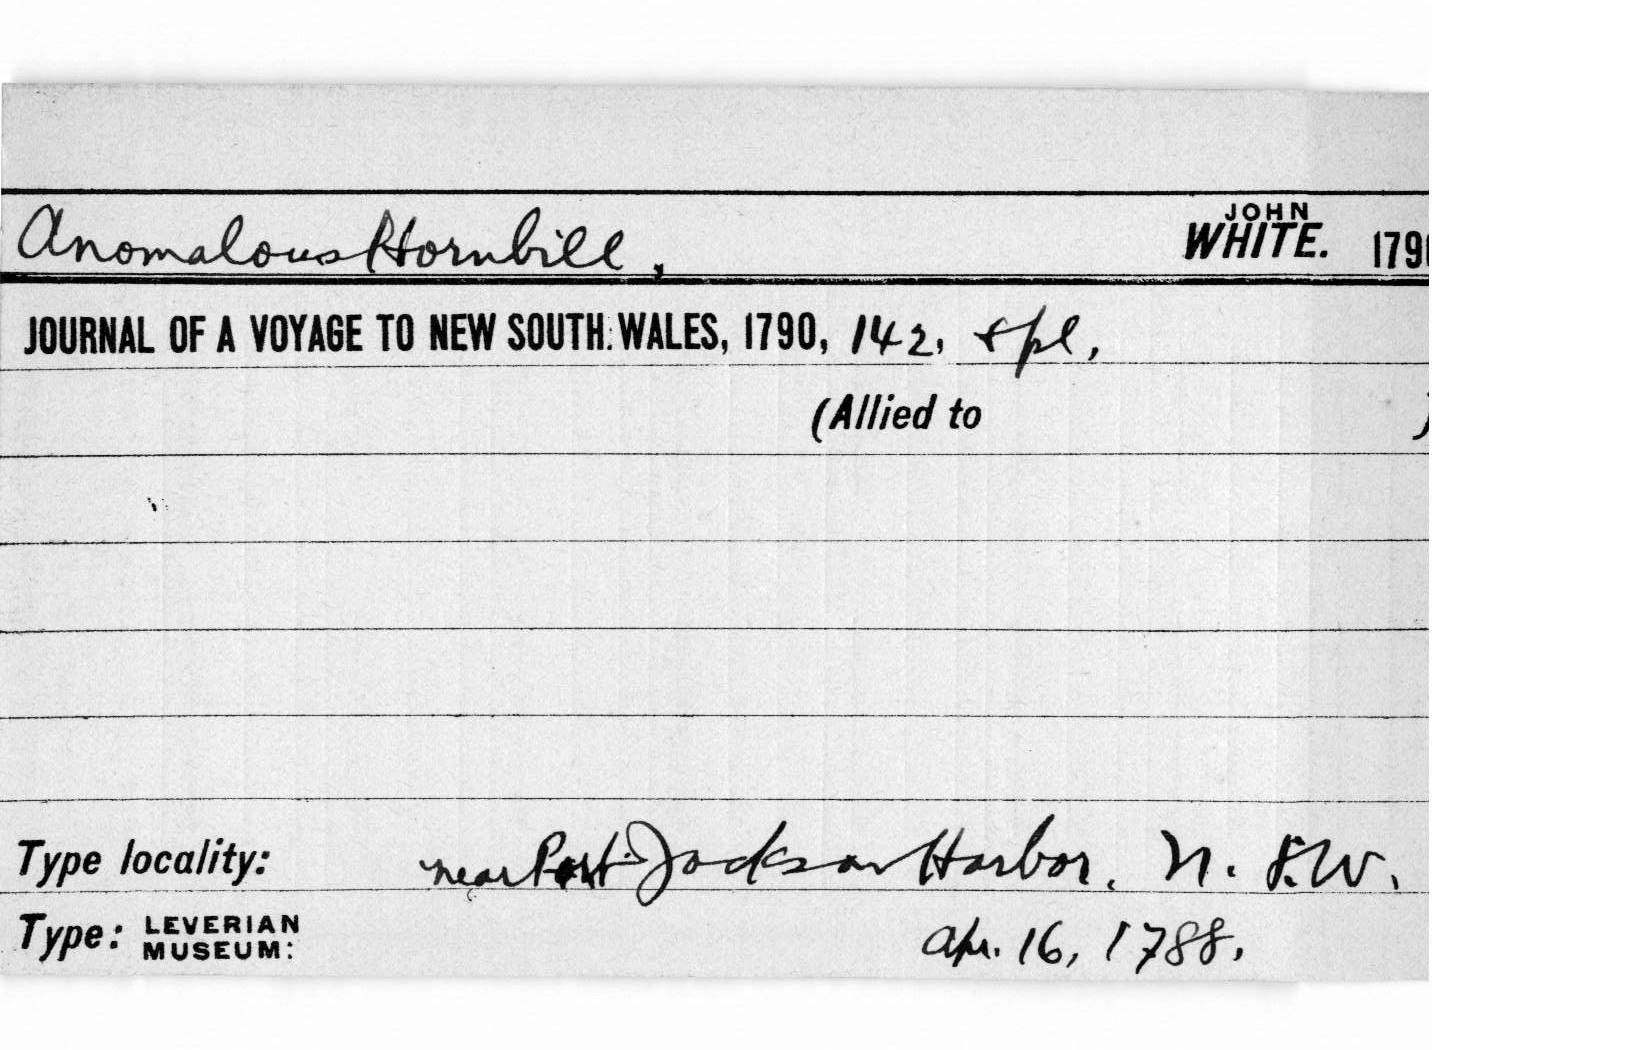 Anomalous Hornbill, JOHN WHITE. 1790
JOURNAL OF A VOYAGE TO NEW SOUTH WALES, 1790, 142, + pl.
(Allied to )
Type locality: near Port Jackson Harbor, N. S.W.
Type: LEVERIAN MUSEUM: Apr. 16, 1788.